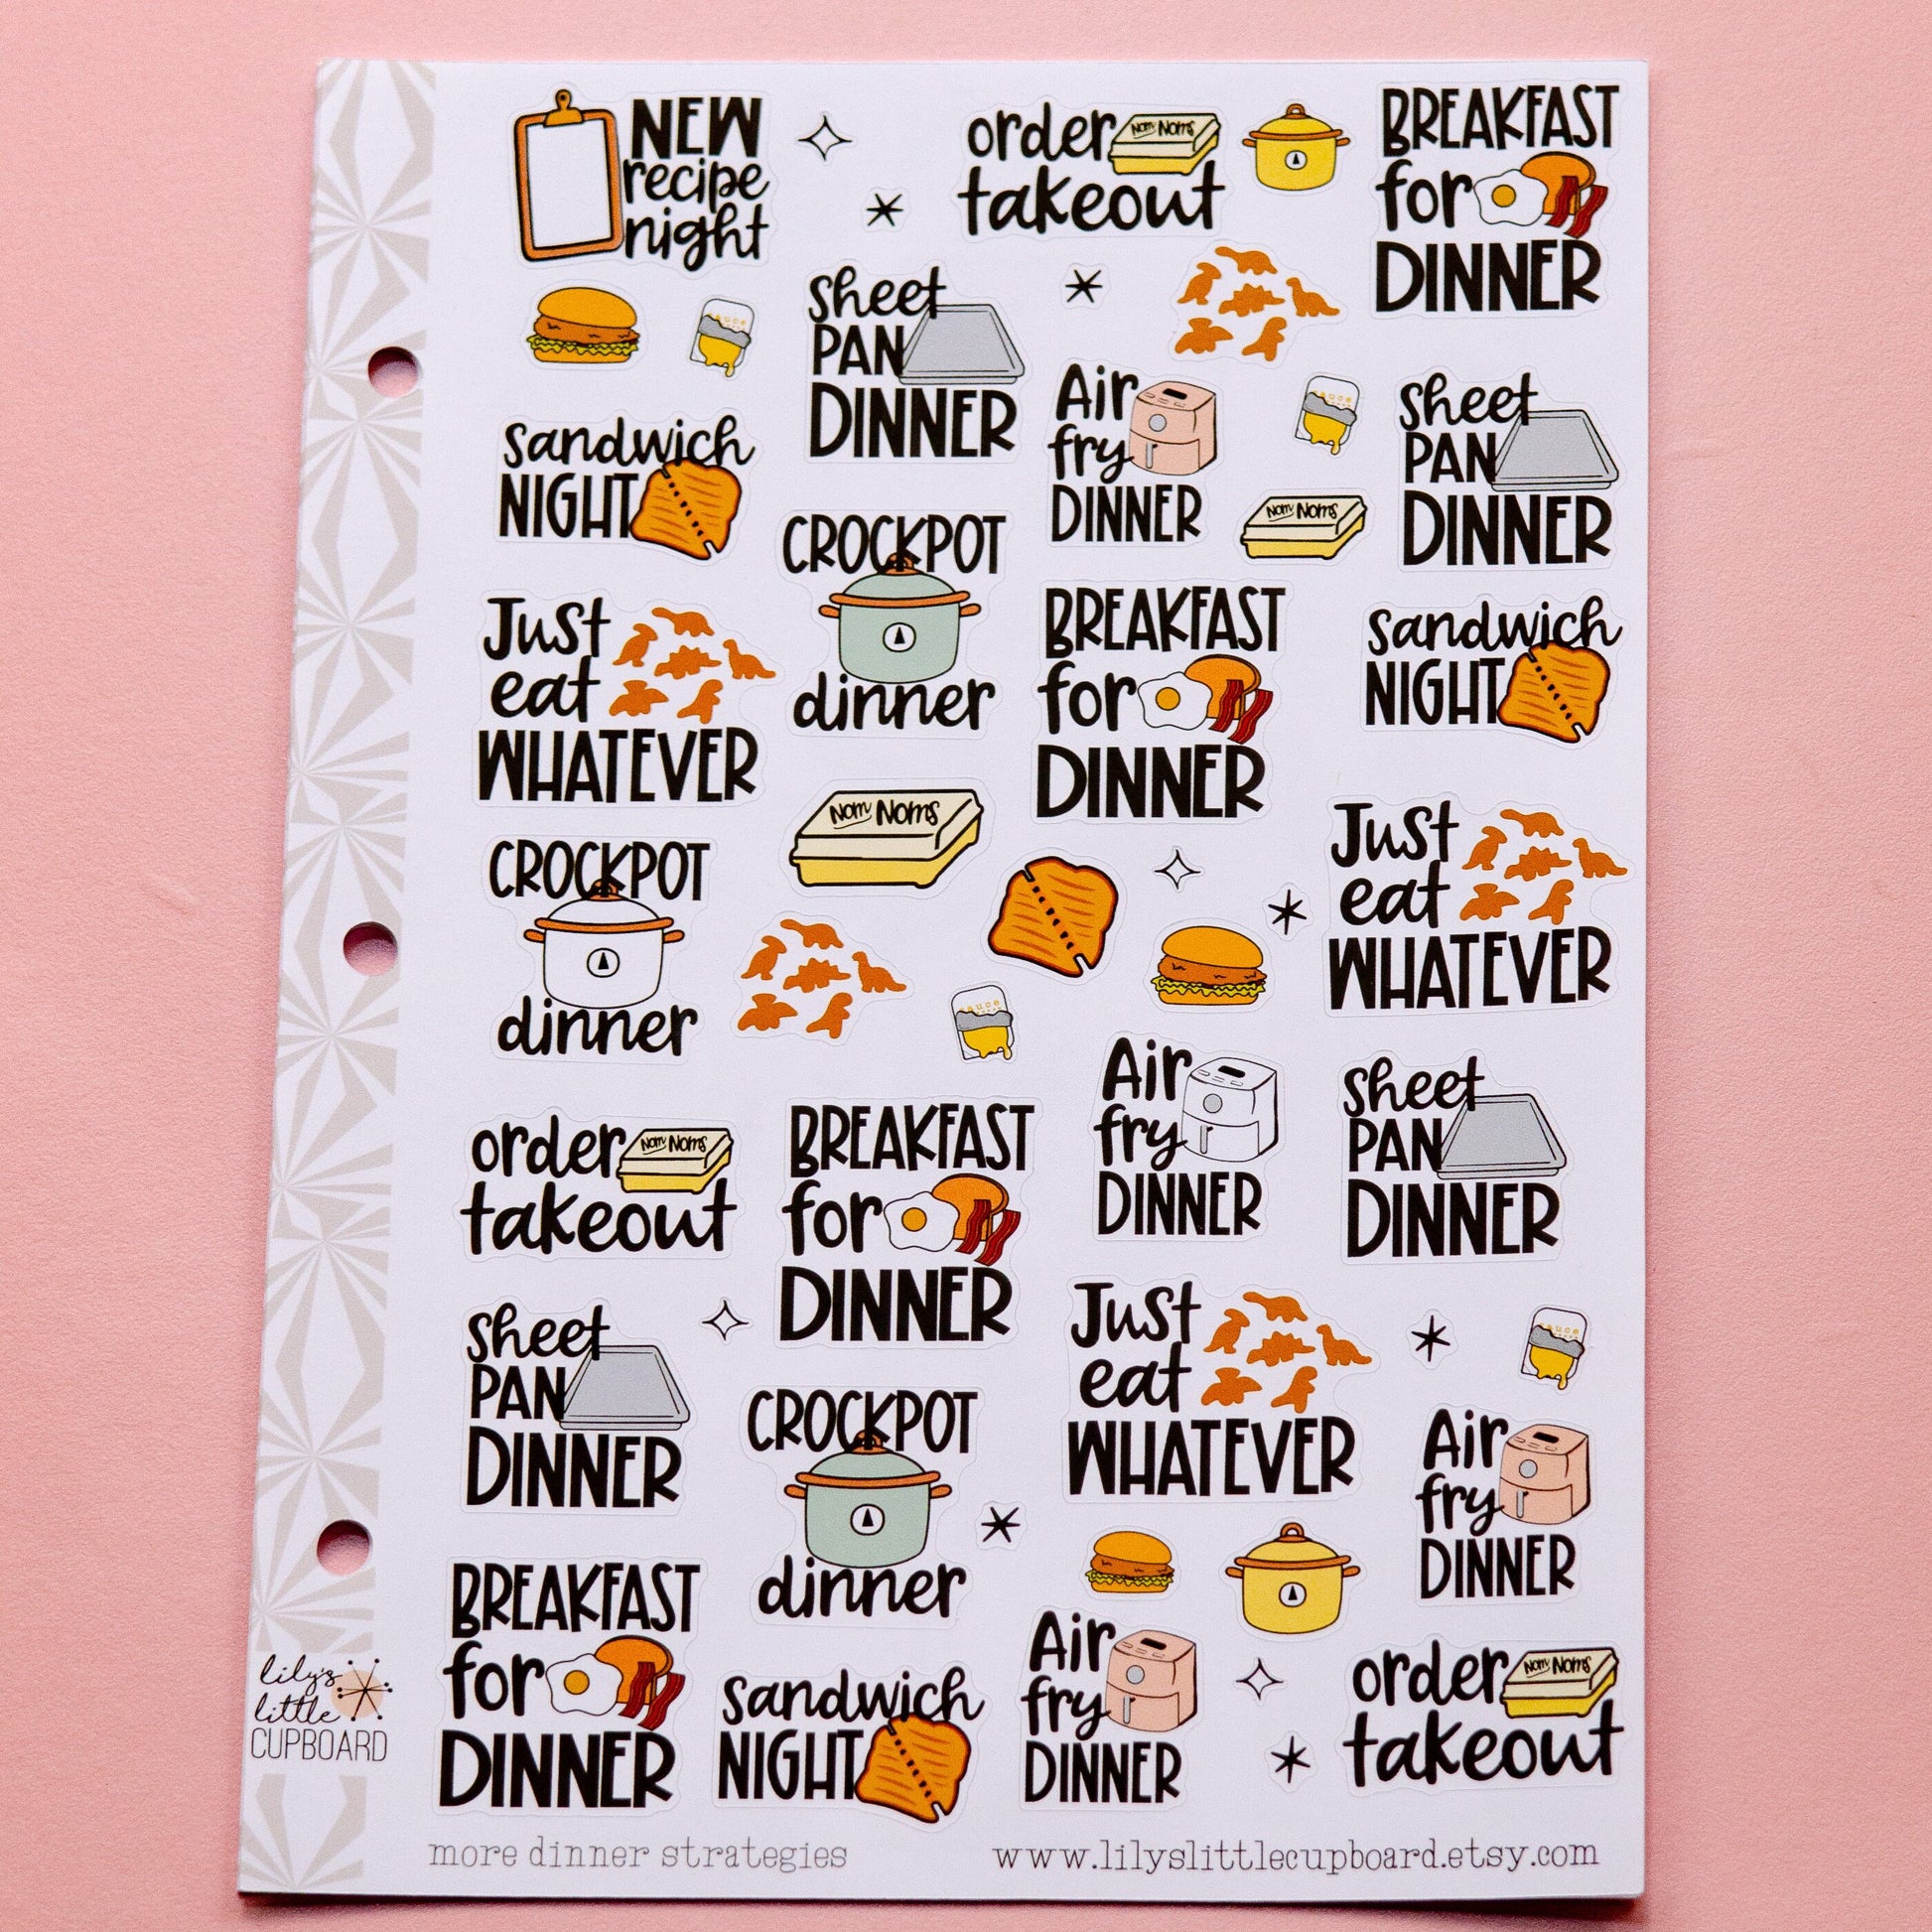 NEW
recipe
night
order
Nom Noms
takeout
BREAKFAST
for
DINNER
sauce
sheet
PAN
DINNER
Air
fry
DINNER
sauce
sheet
PAN
DINNER
sandwich
NIGHT
CROCKPOT
dinner
Nom Noms
Just
eat
WHATEVER
BREAKFAST
for
DINNER
sandwich
NIGHT
Nom Noms
Just
eat
WHATEVER
CROCKPOT
dinner
sauce
Air
fry
DINNER
sheet
PAN
DINNER
order
Nom Noms
takeout
BREAKFAST
for
DINNER
Just
eat
WHATEVER
sauce
sheet
PAN
DINNER
CROCKPOT
dinner
Air
fry
DINNER
BREAKFAST
for
DINNER
sandwich
NIGHT
Air
fry
DINNER
order
Nom Noms
takeout
lily's
little
CUPBOARD
more dinner strategies
www.lilyslittlecupboard.etsy.com